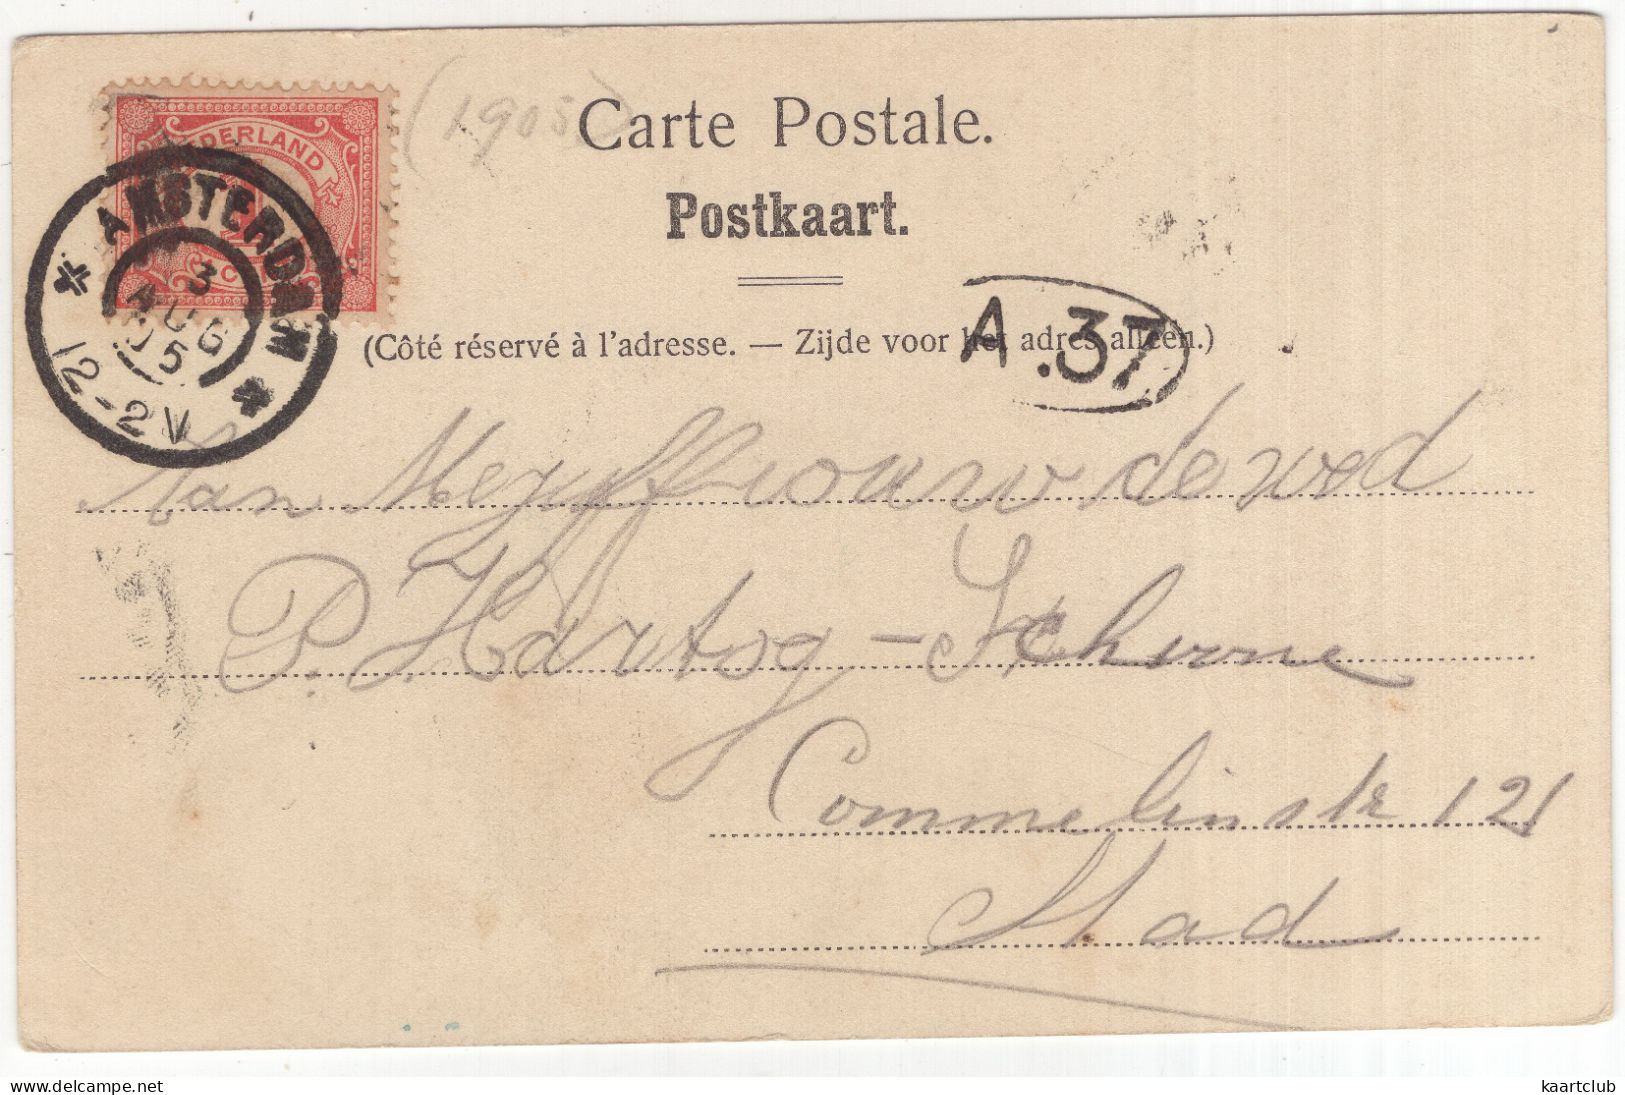 (1905)
Carte Postale.
Postkaart.
NEDERLAND
1
C
AMSTERDAM
3
AUG
05
12-2V
A.37
(Côté réservé à l'adresse. — Zijde voor het adres alleen.)
Aan Mejuffrouw de wed
P. Hartog-
Commelinstr 121
Stad
kaartclub